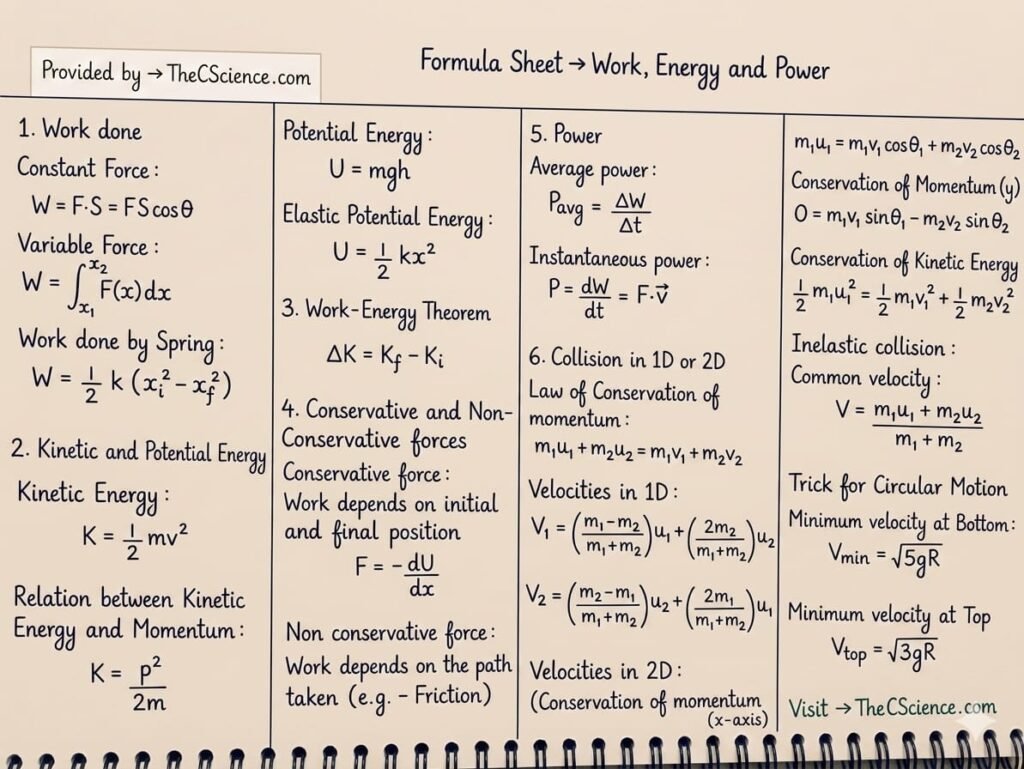 Provided by → TheCScience.com
Formula Sheet → Work, Energy and Power
1. Work done
Constant Force :
W = F·S = FS cos θ
Variable Force :
W = ∫_{x₁}^{x₂} F(x) dx
Work done by Spring :
W = 1/2 k (xᵢ² − x_f²)
2. Kinetic and Potential Energy
Kinetic Energy :
K = 1/2 mv²
Relation between Kinetic
Energy and Momentum :
K = p²/2m
Potential Energy :
U = mgh
Elastic Potential Energy :
U = 1/2 kx²
3. Work-Energy Theorem
ΔK = K_f − Kᵢ
4. Conservative and Non-
Conservative forces
Conservative force :
Work depends on initial
and final position
F = − dU/dx
Non conservative force :
Work depends on the path
taken (e.g. − Friction)
5. Power
Average power :
Pavg = ΔW/Δt
Instantaneous power :
P = dW/dt = F·v⃗
6. Collision in 1D or 2D
Law of Conservation of
momentum :
m₁u₁ + m₂u₂ = m₁v₁ + m₂v₂
Velocities in 1D :
V₁ = ((m₁−m₂)/(m₁+m₂)) u₁ + (2m₂/(m₁+m₂)) u₂
V₂ = ((m₂−m₁)/(m₁+m₂)) u₂ + (2m₁/(m₁+m₂)) u₁
Velocities in 2D :
(Conservation of momentum
(x-axis)
m₁u₁ = m₁v₁ cos θ₁ + m₂v₂ cos θ₂
Conservation of Momentum (y)
0 = m₁v₁ sin θ₁ − m₂v₂ sin θ₂
Conservation of Kinetic Energy
1/2 m₁u₁² = 1/2 m₁v₁² + 1/2 m₂v₂²
Inelastic collision :
Common velocity :
V = (m₁u₁ + m₂u₂)/(m₁ + m₂)
Trick for Circular Motion
Minimum velocity at Bottom :
Vmin = √5gR
Minimum velocity at Top
Vtop = √3gR
Visit → TheCScience.com